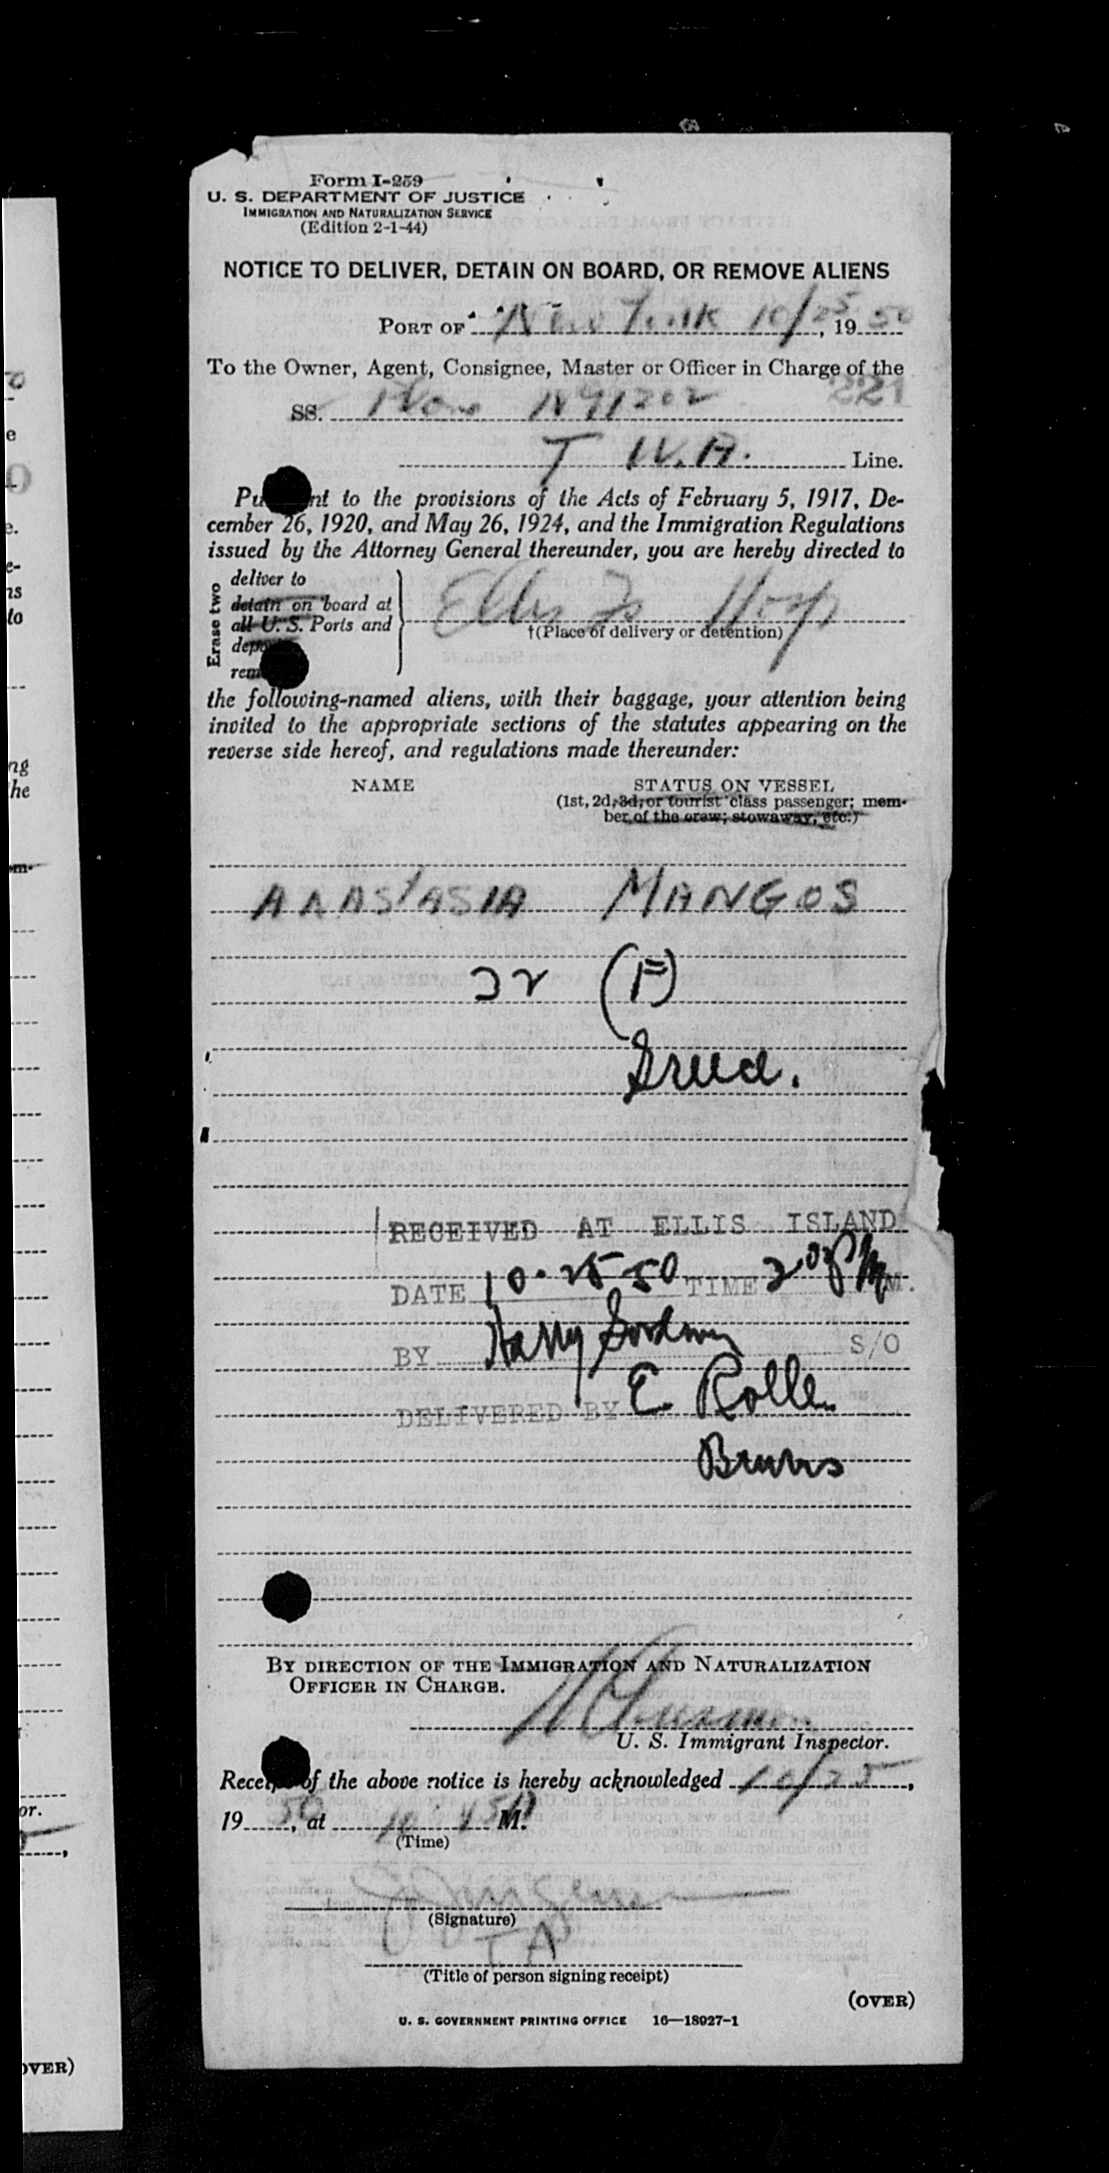 Form I-259
U. S. DEPARTMENT OF JUSTICE
IMMIGRATION AND NATURALIZATION SERVICE
(Edition 2-1-44)
NOTICE TO DELIVER, DETAIN ON BOARD, OR REMOVE ALIENS
PORT OF New York 10/25, 19 50
To the Owner, Agent, Consignee, Master or Officer in Charge of the
221
SS. Plane N91202
T. W. A. Line.
to the provisions of the Acts of February 5, 1917, De-
cember 26, 1920, and May 26, 1924, and the Immigration Regulations
issued by the Attorney General thereunder, you are hereby directed to
Erase two
deliver to
detain on board at
all U. S. Ports and
Ellis Is Hosp
†(Place of delivery or detention)
the following-named aliens, with their baggage, your attention being
invited to the appropriate sections of the statutes appearing on the
reverse side hereof, and regulations made thereunder:
NAME STATUS ON VESSEL
(1st, 2d, 3d, or tourist class passenger; mem-
ber of the crew; stowaway, etc.)
ANASTASIA MANGOS
32 (F)
RECEIVED AT ELLIS ISLAND
DATE 10-25-50 TIME 2:05 PM M.
BY Harry S/O
DELIVERED BY E. Rolle
BY DIRECTION OF THE IMMIGRATION AND NATURALIZATION
OFFICER IN CHARGE.
U. S. Immigrant Inspector.
Receipt of the above notice is hereby acknowledged 10/25,
19 50, at 10:45 A M.
(Time)
(Signature)
TA
(Title of person signing receipt)
(OVER)
U. S. GOVERNMENT PRINTING OFFICE 16—18027-1
e
e.
e-
ns
to
ng
he
em-
or.
OVER)